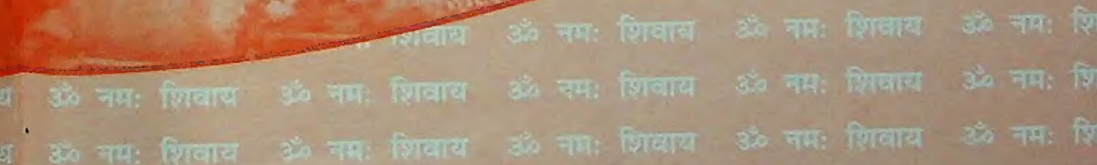 शिवाय ॐ नमः शिवाय ॐ नमः शिवाय ॐ नमः शि
य ॐ नमः शिवाय ॐ नमः शिवाय ॐ नमः शिवाय ॐ नमः शिवाय ॐ नमः शि
य ॐ नमः शिवाय ॐ नमः शिवाय ॐ नमः शिवाय ॐ नमः शिवाय ॐ नमः शि